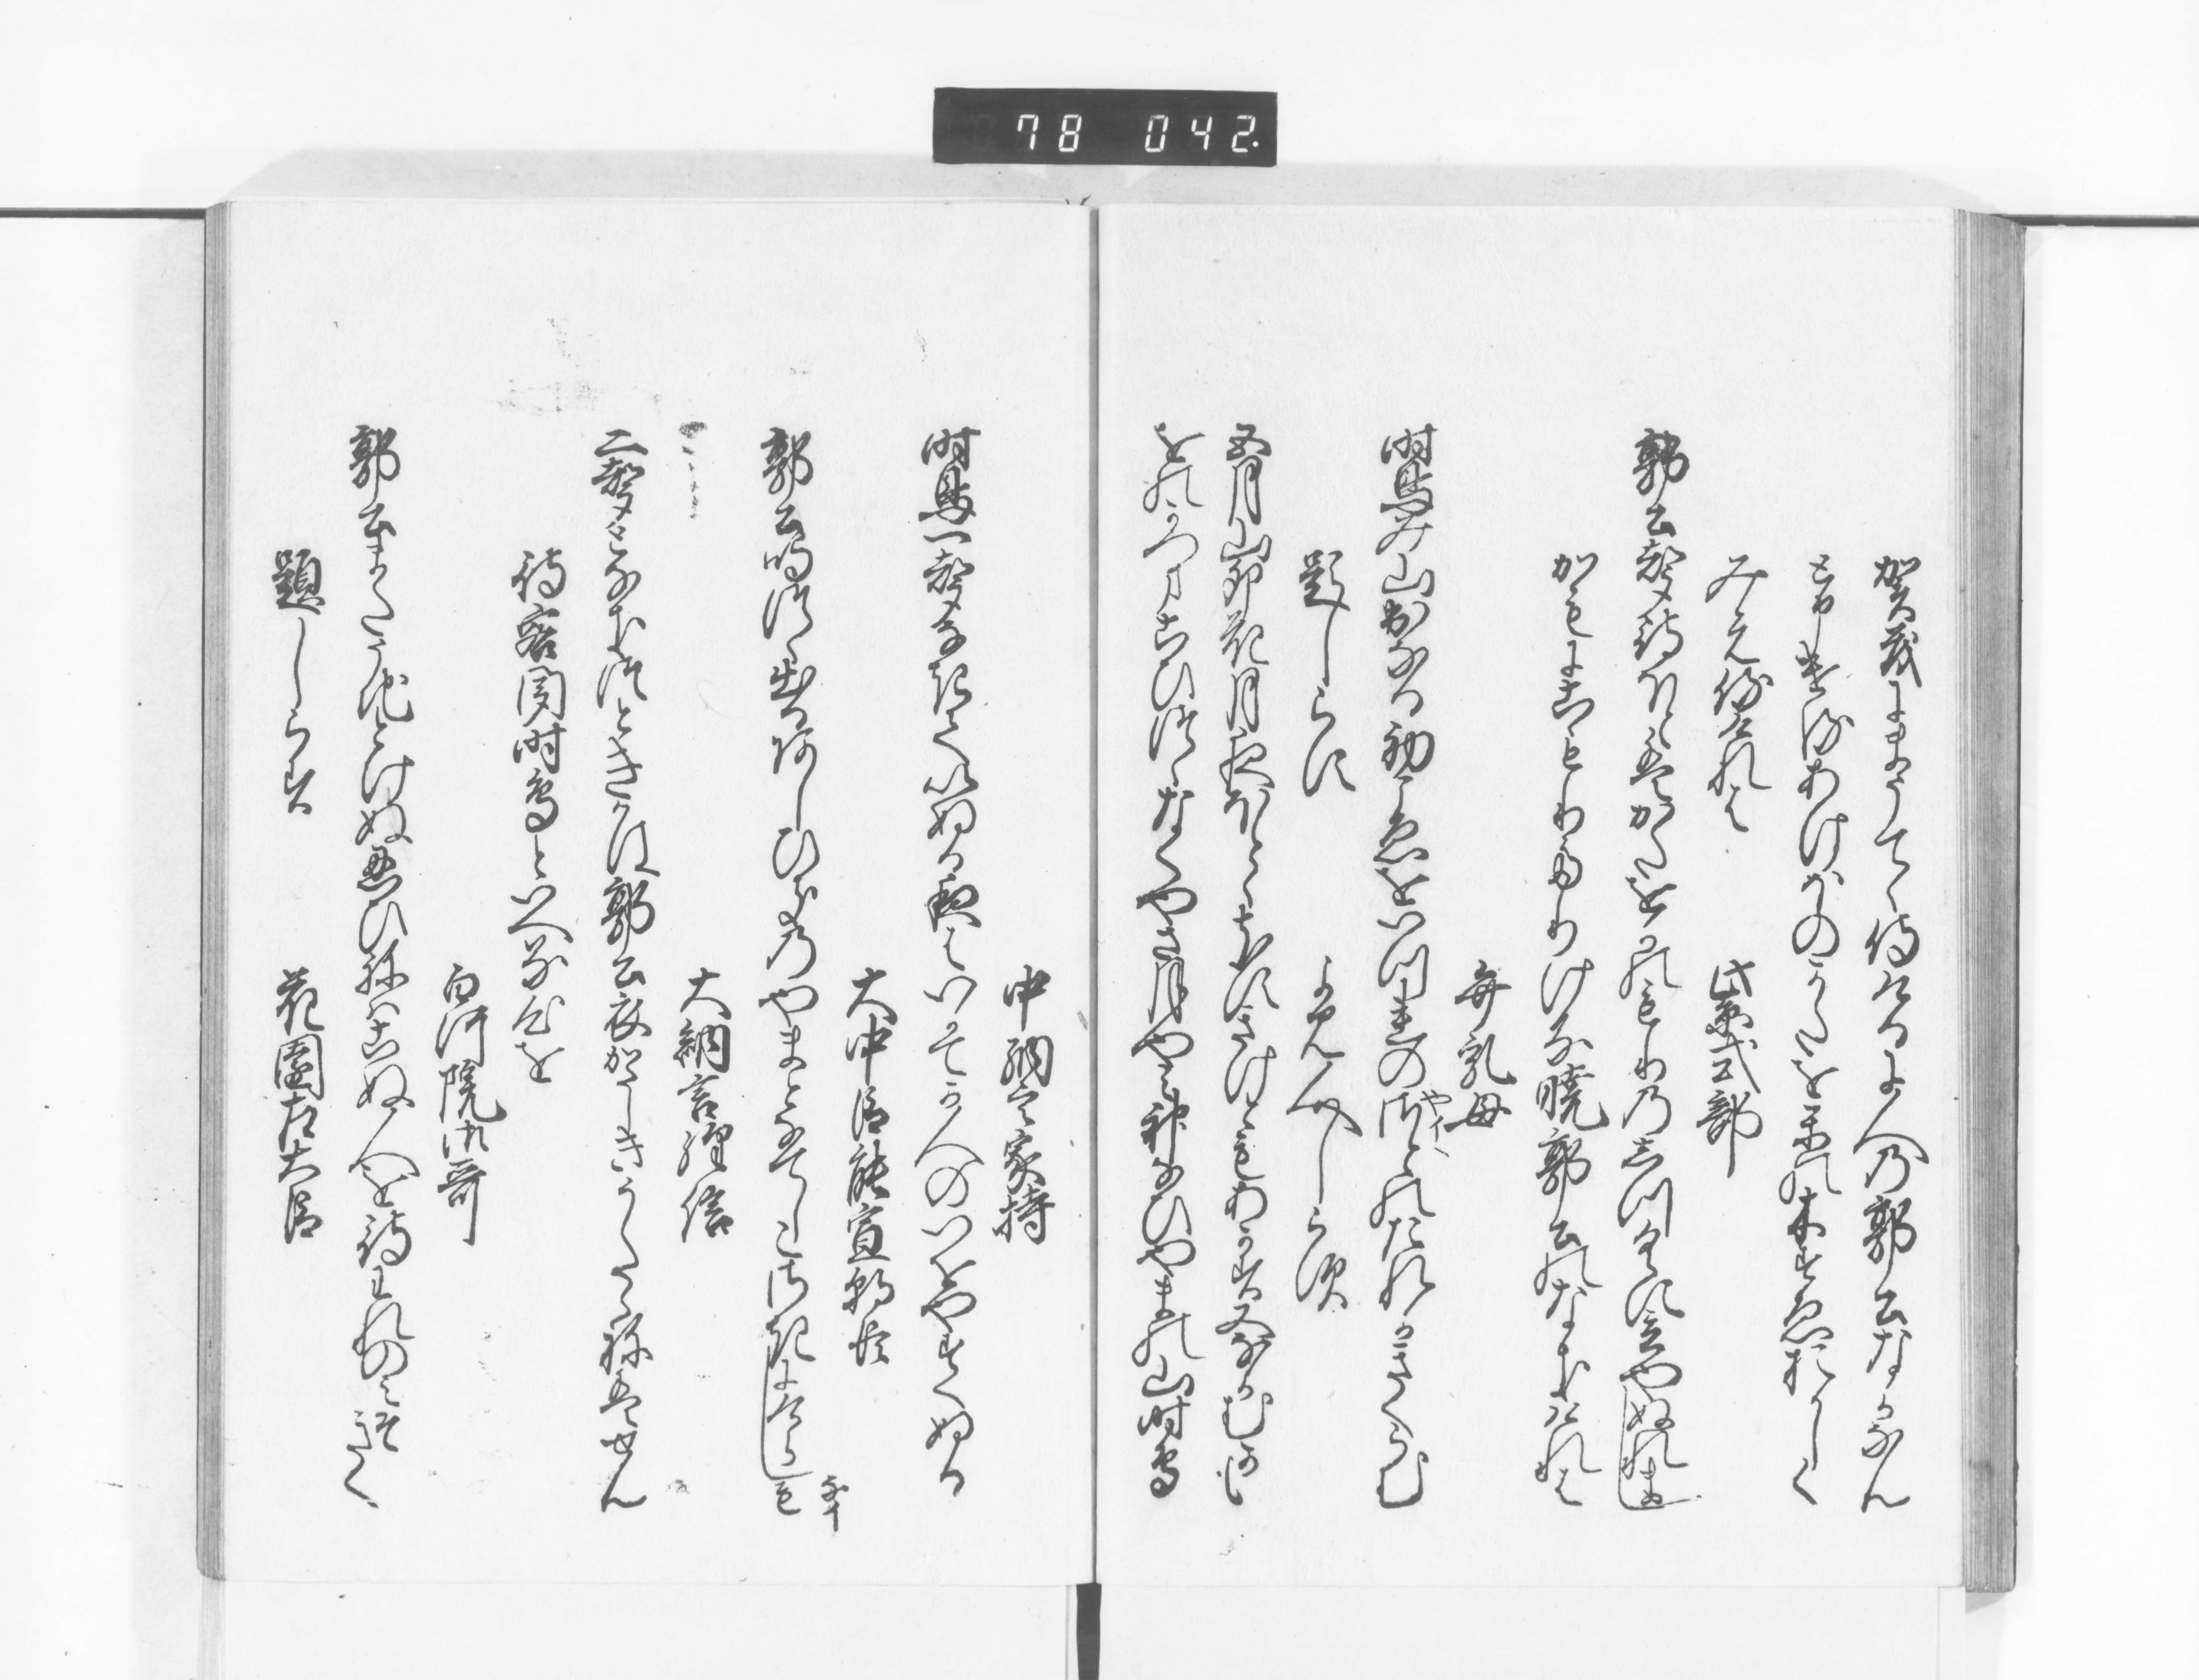 78 042.
賀茂にまうてゝ侍けるに人の郭公なかなん
と申けるあけほのかたをかの木すゑおかしく
みえ侍けれは
紫式部
郭公聲待ほとはかたをかのもりのしつくに立やぬれまし
かもにこもりたりける暁郭公のなきけれは
弁乳母
時鳥み山出なる初こゑをいつれの
やイ
さとのたれかきくらむ
題しらす
よみ人しらす
五月山卯花月夜ほとゝきすきけともあかす又なかむかも
をのかつまこひつゝなくやさ月やみ神なひやまの山時鳥
中納言家持
時鳥一聲なきていぬる夜はいかてか人のいをやすくぬる
大中臣能宣朝臣
郭公鳴つゝ出るあしひきのやまとなてしこさきにけらしも
大納言経信
二聲となきつときかは郭公夜かたしきうたゝねはせん
待客聞時鳥といへる心を
白河院御哥
郭公またうちとけぬ忍ひねはこぬ人を待われのみそきく
題しらす
花園左大臣